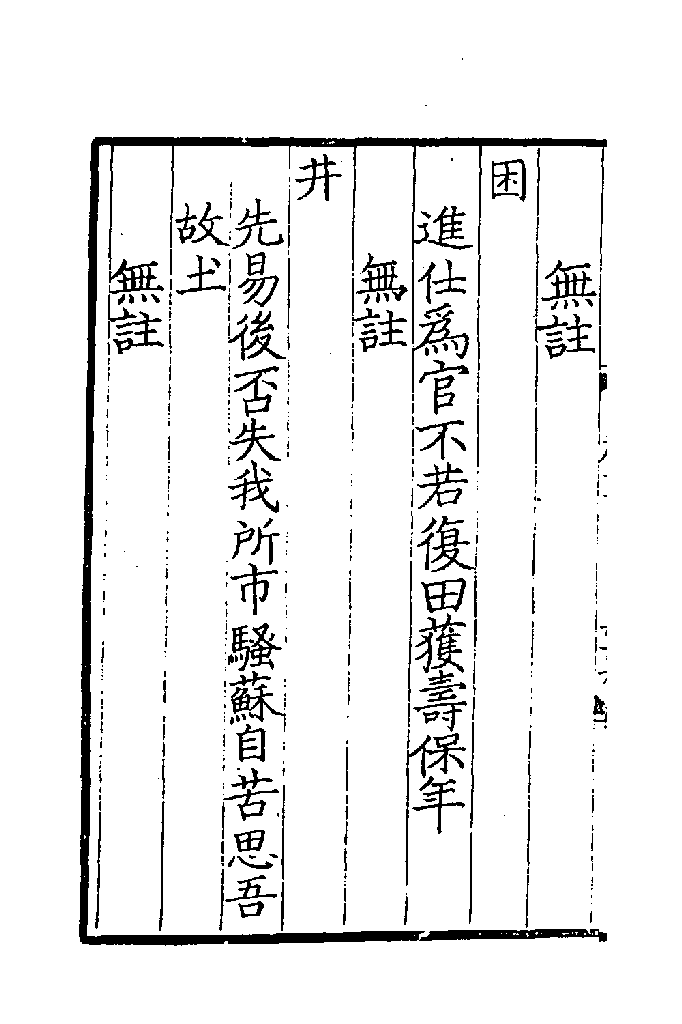 無註
困
進仕爲官不若復田獲壽保年
無註
井
先易後否失我所市騷蘇自苦思吾
故土
無註